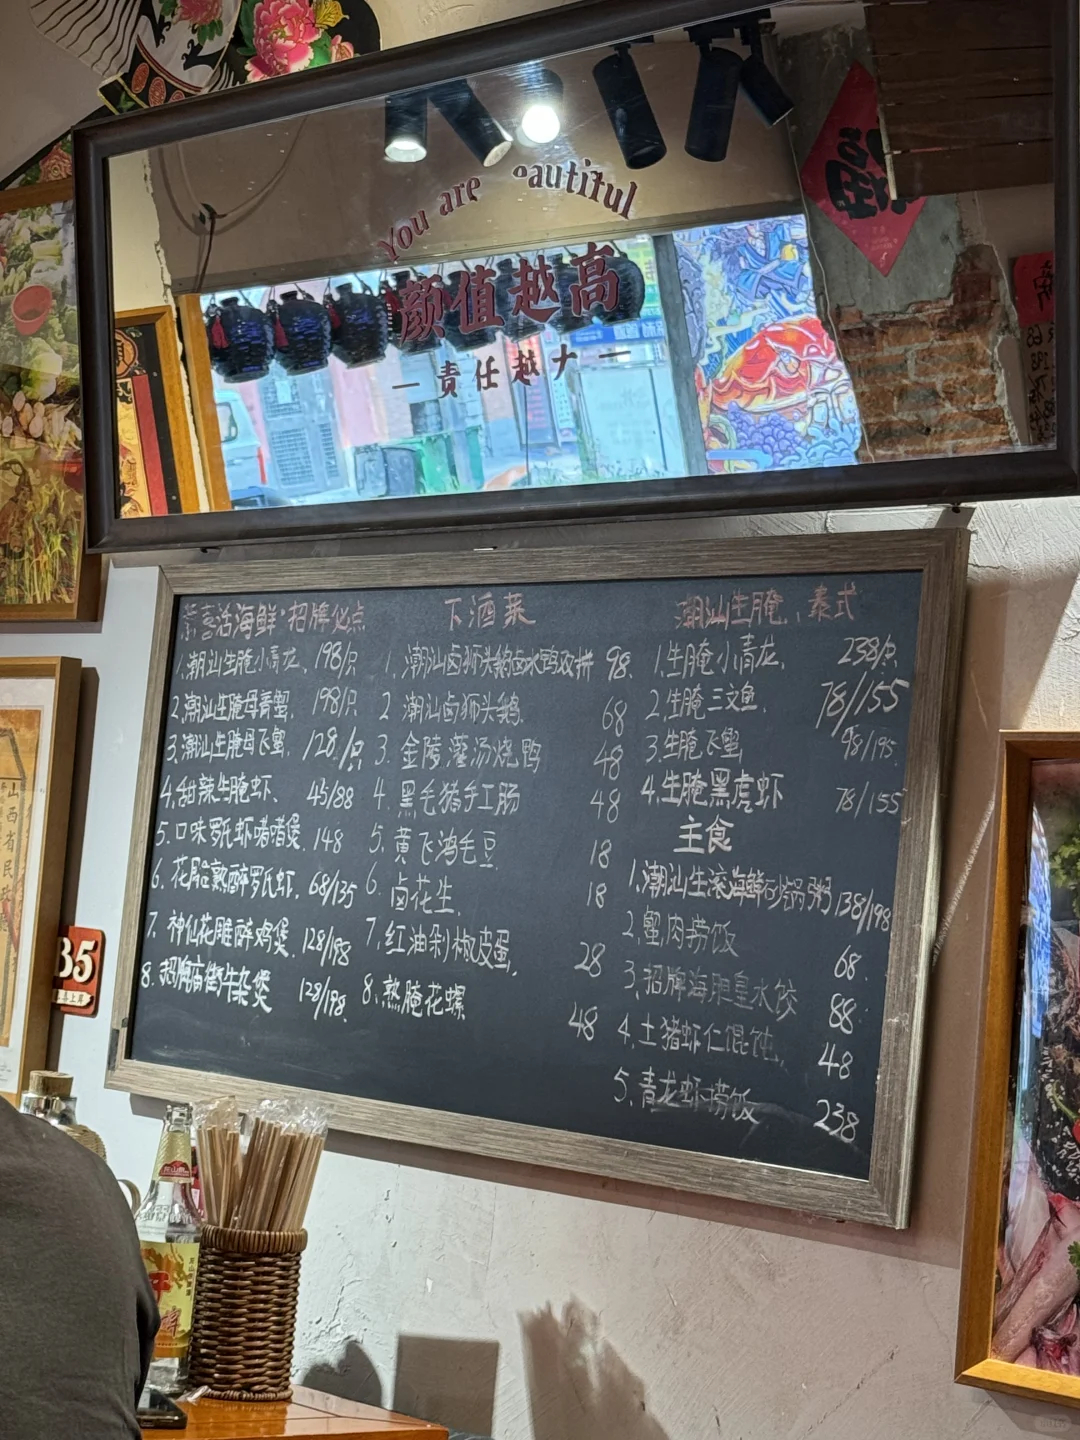 you are beautiful
颜值越高
责任越大
福
恭喜活海鲜·招牌必点
1.潮汕生腌小青龙 198/只
2.潮汕生腌母青蟹 198/只
3.潮汕生腌母飞蟹 128/只
4.甜辣生腌虾、 45/88
5.口味罗氏虾啫啫煲 148
6.花雕熟醉罗氏虾. 68/135
7.神仙花雕醉鸡煲 128/198
8.招牌庙街牛杂煲 128/198
下酒菜
1.潮汕卤狮头鹅卤水鸭双拼 98.
2 潮汕卤狮头鹅 68
3.金陵灌汤烧鸭 48
4.黑毛猪手工肠 48
5.黄飞鸿毛豆 18
6.卤花生. 18
7.红油剁椒皮蛋, 28
8.熟腌花螺 48
潮汕生腌、泰式
1.生腌小青龙. 238/只
2.生腌三文鱼. 78/155
3.生腌飞蟹 98/195
4.生腌黑虎虾 78/155
主食
1.潮汕生滚海鲜砂锅粥 138/198
2.蟹肉捞饭 68
3.招牌海胆皇水饺 88
4.土猪虾仁馄饨 48
5.青龙虾捞饭 238
山西省民
35
喜上岸